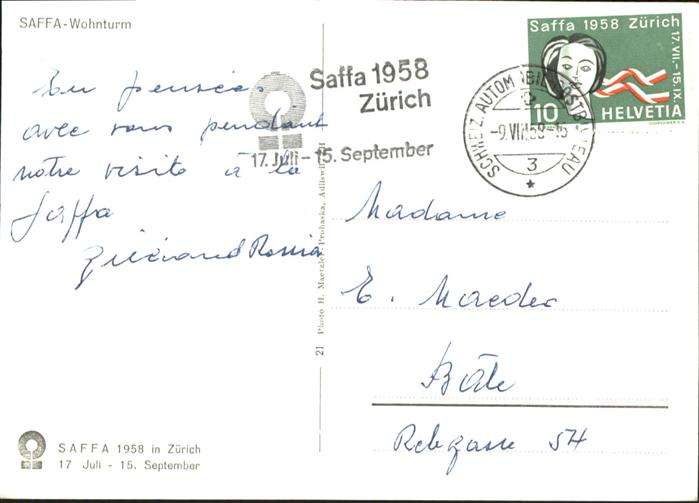 SAFFA-Wohnturm
Saffa 1958 Zürich
17.VII.-15.IX.
10 HELVETIA
Saffa 1958
Zürich
17. Juli - 15. September
SCHWEIZ. AUTOMOBIL-POSTBUREAU
-9.VIII.58-15
3
En pensée
avec vous pendant
notre visite à la
Saffa
Madame
E. Maeder
Bâle
Rebgasse 54
21 Photo H. Maetzler-Prohaska, Adliswil
SAFFA 1958 in Zürich
17 Juli - 15. September